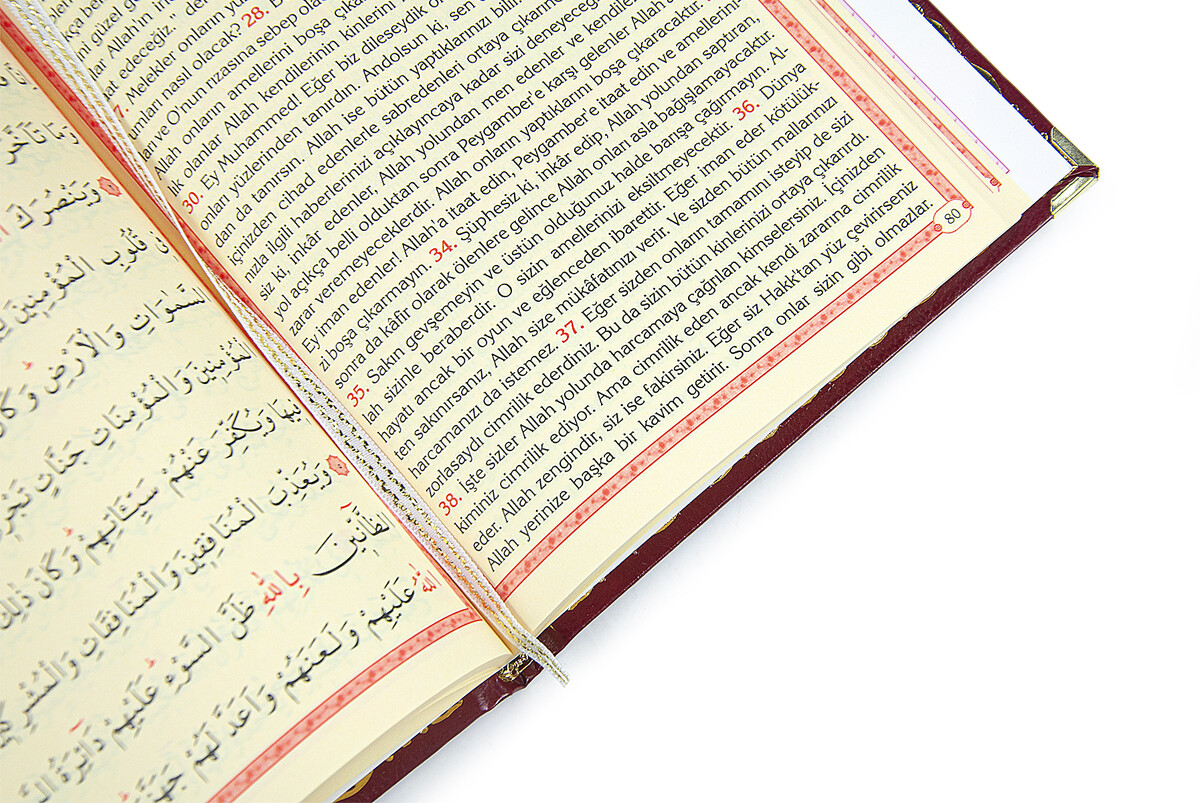 Melekler onların
nasıl olacak? 28.
ve O'nun rızasına sebep
Allah onların amellerini boşa
olanlar Allah kendilerinin kinlerini
30. Ey Muhammed! Eğer biz dileseydik
onları yüzlerinden tanırdın. Andolsun ki, sen
dan da tanırsın. Allah ise bütün yaptıklarınızı
içinizden cihad edenlerle sabredenleri ortaya
nızla ilgili haberlerinizi açıklayıncaya kadar sizi
siz ki, inkâr edenler, Allah yolundan men edenler ve
yol açıkça belli olduktan sonra Peygamber'e karşı gelenler
zarar veremeyeceklerdir. Allah onların yaptıklarını boşa çıkaracaktır.
Ey iman edenler! Allah'a itaat edin, Peygamber'e itaat edin ve amellerini-
zi boşa çıkarmayın. 34. Şüphesiz ki, inkâr edip, Allah yolundan saptıran,
sonra da kâfir olarak ölenlere gelince Allah onları asla bağışlamayacaktır.
35. Sakın gevşemeyin ve üstün olduğunuz halde barışa çağırmayın. Al-
lah sizinle beraberdir. O sizin amellerinizi eksiltmeyecektir. 36. Dünya
hayatı ancak bir oyun ve eğlenceden ibarettir. Eğer iman eder kötülük-
ten sakınırsanız, Allah size mükâfatınızı verir. Ve sizden bütün mallarınızı
harcamanızı da istemez. 37. Eğer sizden onların tamamını isteyip de sizi
zorlasaydı cimrilik ederdiniz. Bu da sizin bütün kinlerinizi ortaya çıkarırdı.
38. İşte sizler Allah yolunda harcamaya çağrılan kimselersiniz. İçinizden
kiminiz cimrilik ediyor. Ama cimrilik eden ancak kendi zararına cimrilik
eder. Allah zengindir, siz ise fakirsiniz. Eğer siz Hakk'tan yüz çevirirseniz
Allah yerinize başka bir kavim getirir. Sonra onlar sizin gibi olmazlar.
80
وَيَنْصُرَكَ
قُلُوبِ الْمُؤْمِنِينَ
السَّمٰوَاتِ وَالْاَرْضِ وَكَانَ
الْمُؤْمِنِينَ وَالْمُؤْمِنَاتِ جَنَّاتٍ
فِيهَا وَيُكَفِّرَ عَنْهُمْ سَيِّئَاتِهِمْ وَكَانَ ذٰلِكَ
وَيُعَذِّبَ الْمُنَافِقِينَ وَالْمُنَافِقَاتِ
الظَّانِّينَ بِاللّٰهِ ظَنَّ السَّوْءِ عَلَيْهِمْ دَائِرَةُ
اللّٰهُ عَلَيْهِمْ وَلَعَنَهُمْ وَاَعَدَّ لَهُمْ